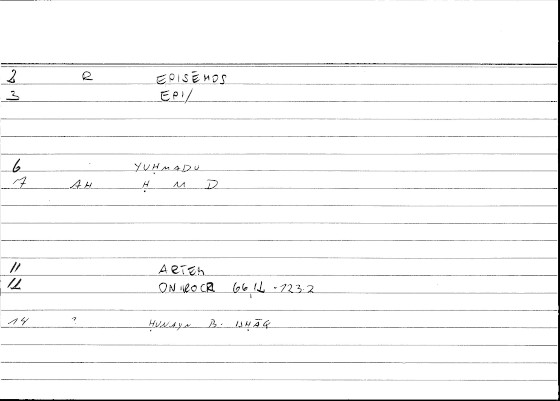 2 R EPISĒMOS
3 EPI/
6 YUḤMADU
7 AH Ḥ M D
11 ARTEM
12 ONIROCR 66,12 - 123.2
14 ? ḤUNAYN B. ISḤĀQ